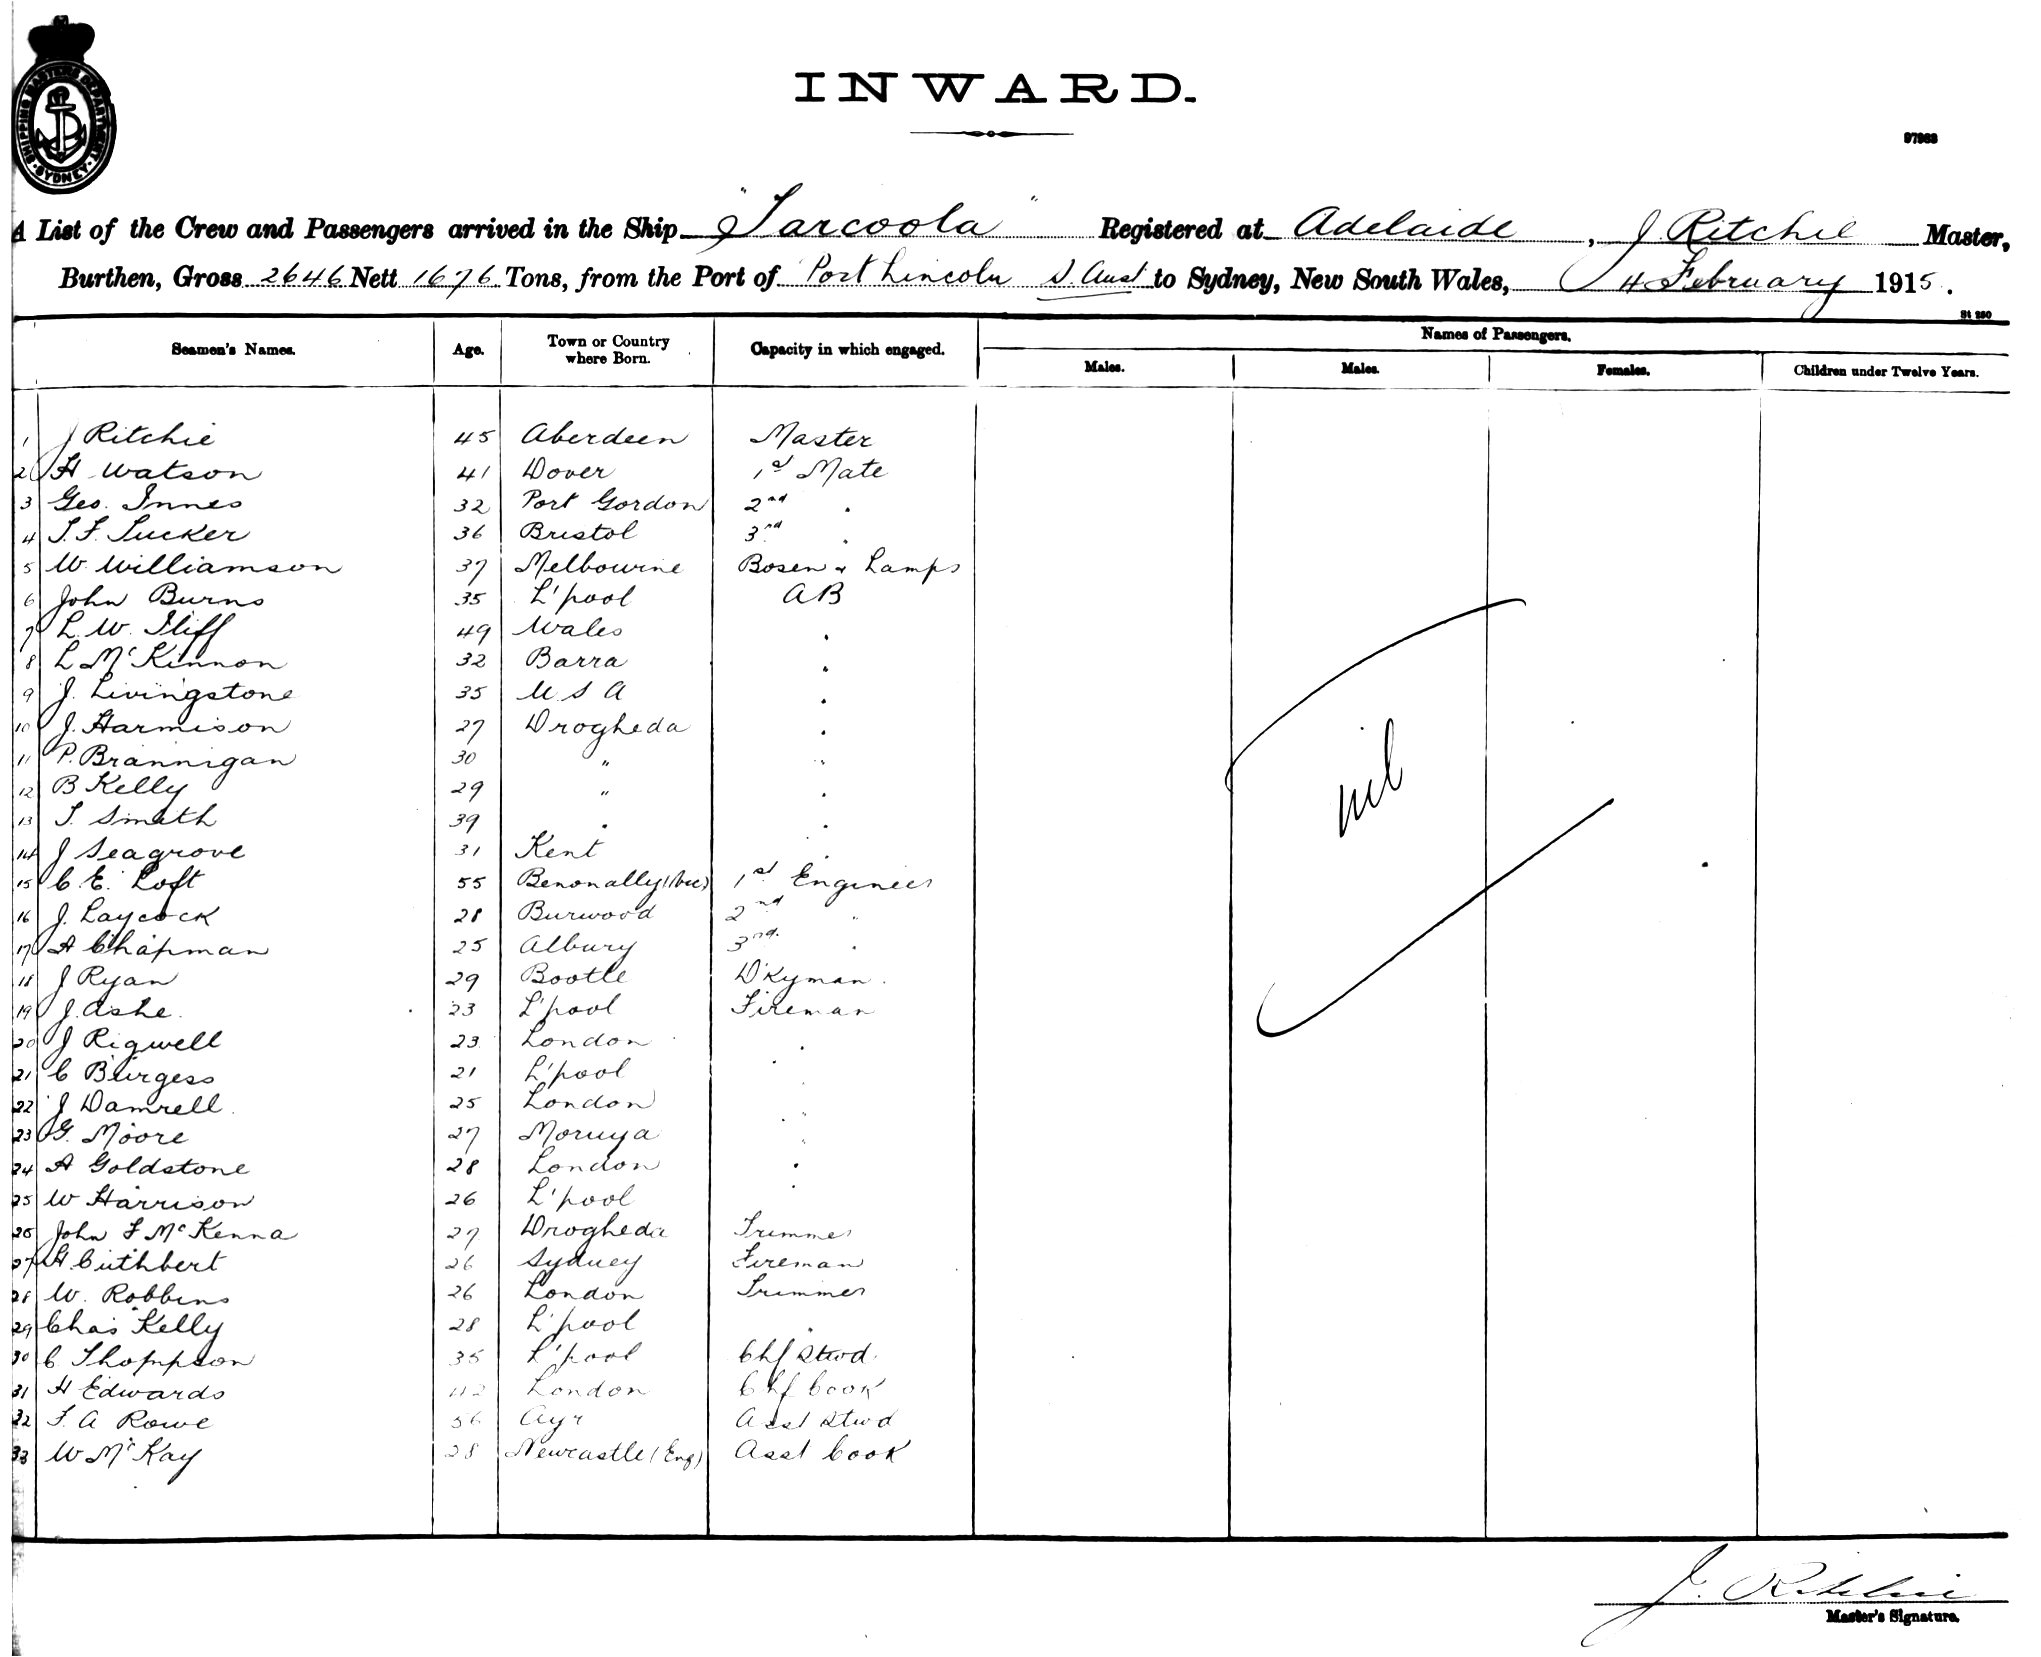 SHIPPING MASTERS DEPARTMENT · SYDNEY ·
INWARD.
97983
A List of the Crew and Passengers arrived in the Ship "Tarcoola" Registered at Adelaide, J Ritchie Master,
Burthen, Gross 2646 Nett 1676 Tons, from the Port of Port Lincoln S. Aust to Sydney, New South Wales, 4 February 1915.
St 280
Seamen's Names. Age. Town or Country where Born. Capacity in which engaged. Names of Passengers.
Males. Males. Females. Children under Twelve Years.
1 J Ritchie 45 Aberdeen Master
2 H Watson 41 Dover 1st Mate
3 Geo. Innes 32 Port Gordon 2nd "
4 T. F. Tucker 36 Bristol 3rd "
5 W. Williamson 37 Melbourne Bosen & Lamps
6 John Burns 35 L'pool AB
7 L. W. Iliff 49 Wales "
8 L McKinnon 32 Barra "
9 J. Livingstone 35 U S A "
10 J. Harmison 27 Drogheda "
11 P. Brannigan 30 " "
12 B Kelly 29 " "
13 T. Smith 39 " "
14 J Seagrove 31 Kent "
15 C. E. Loft 55 Benonally (Vic) 1st Engineer
16 J. Laycock 28 Burwood 2nd "
17 A Chapman 25 Albury 3rd. "
18 J Ryan 29 Bootle D'kyman.
19 J. Ashe. 23 L'pool Fireman
20 J Rigwell 23 London "
21 C Burgess 21 L'pool "
22 J Damrell. 25 London "
23 G. Moore 27 Moruya "
24 A Goldstone 28 London "
25 W Harrison 26 L'pool "
26 John F McKenna 27 Drogheda Trimmer
27 H. Cuthbert 26 Sydney Fireman
28 W. Robbins 26 London Trimmer
29 Chas Kelly 28 L'pool "
30 C. Thompson 35 L'pool Chf Stwd.
31 H Edwards 42 London Chf Cook
32 F. A Rowe 56 Ayr Asst Stwd
33 W McKay 28 Newcastle (Eng) Asst Cook
nil
J. Ritchie
Master's Signature.